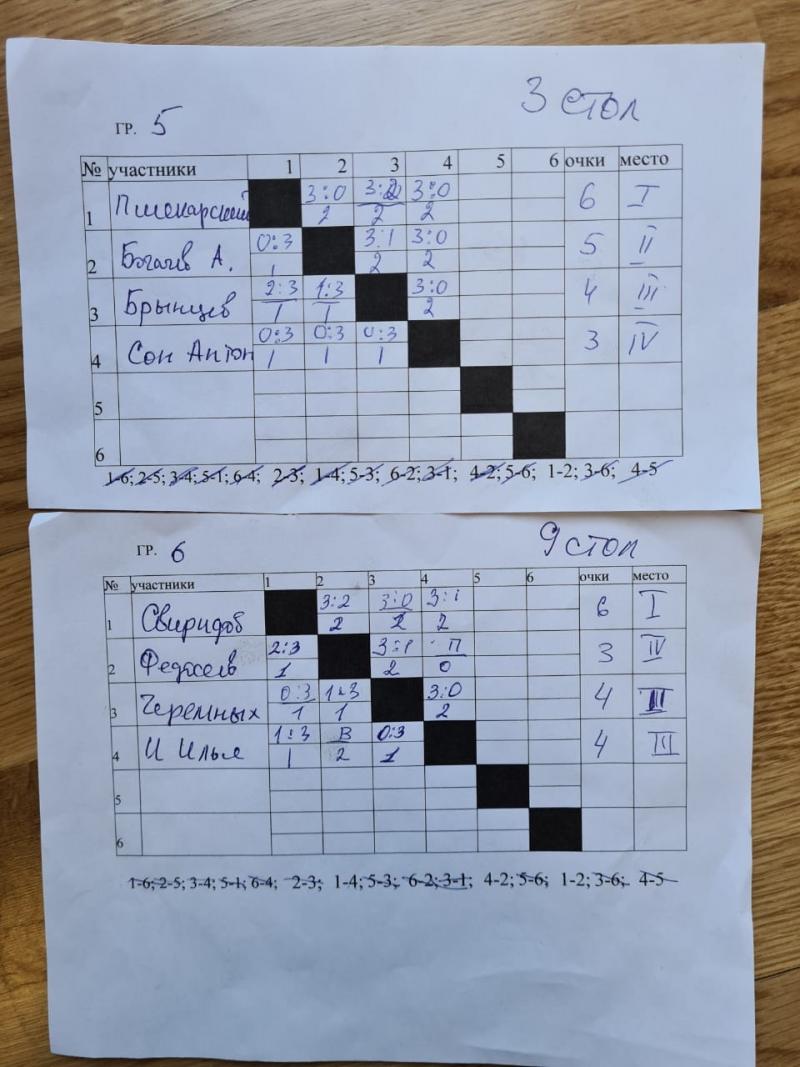 3 стол
ГР. 5
№ участники 1 2 3 4 5 6 очки место
1 Пшекарский 3:0 3:2 3:0 6 I
2 2 2
2 Богаев А. 0:3 3:1 3:0 5 II
1 2 2
3 Брынцев 2:3 1:3 3:0 4 III
1 1 2
4 Сон Антон 0:3 0:3 0:3 3 IV
1 1 1
5
6
1-6; 2-5; 3-4; 5-1; 6-4; 2-3; 1-4; 5-3; 6-2; 3-1; 4-2; 5-6; 1-2; 3-6; 4-5
9 стол
ГР. 6
№ участники 1 2 3 4 5 6 очки место
1 Свиридов 3:2 3:0 3:1 6 I
2 2 2
2 Федосеев 2:3 3:1 П 3 IV
1 2 0
3 Черемных 0:3 1:3 3:0 4
1 1 2
4 И Илья 1:3 В 0:3 4 III
1 2 1
5
6
1-6; 2-5; 3-4; 5-1; 6-4; 2-3; 1-4; 5-3; 6-2; 3-1; 4-2; 5-6; 1-2; 3-6; 4-5